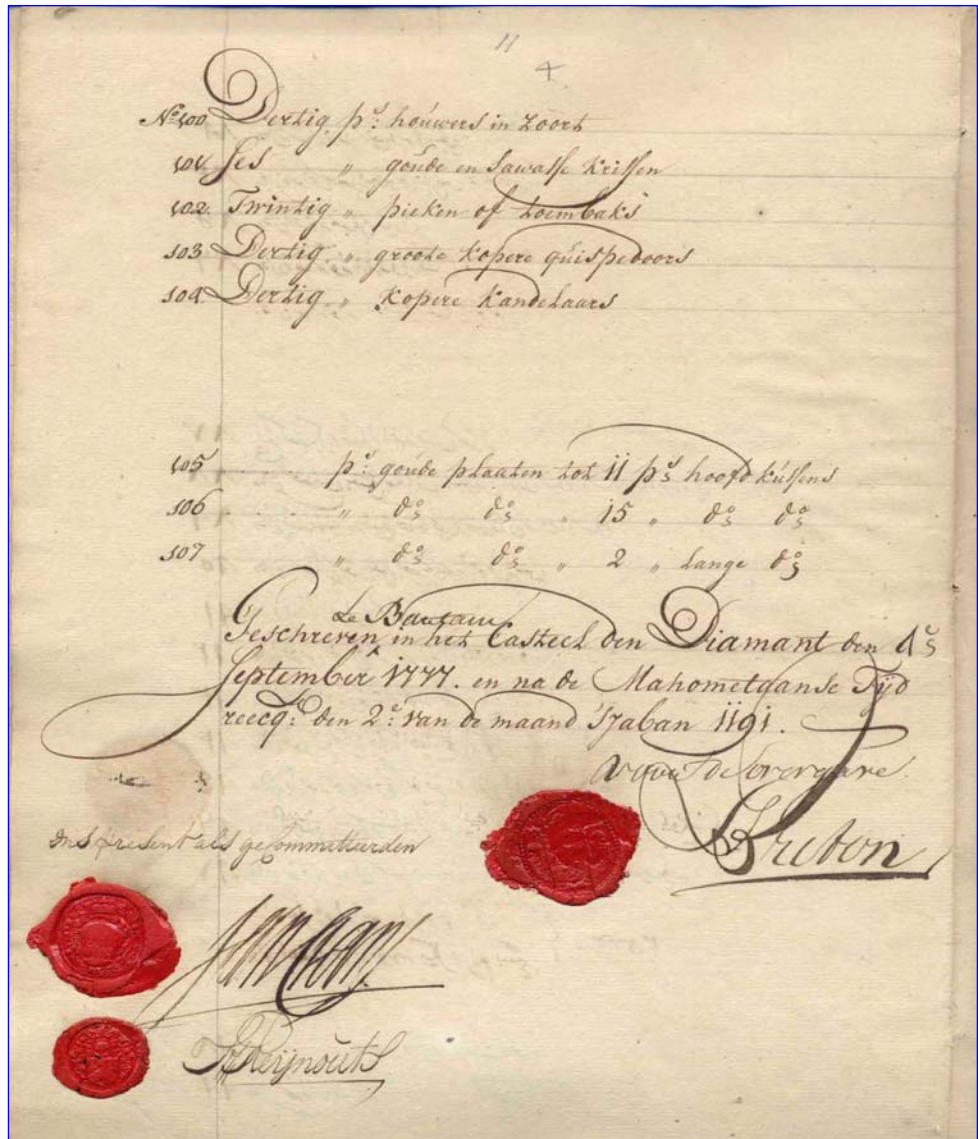 11
4
No. 100 Dertig ps: houwers in zoort
101 Ses " goude en Sawasse Krissen
102. Twintig " pieken of toembaks
103 Dertig " groote kopere quispedoors
104. Dertig " kopere Kandelaars
105 ps: goude plaaten tot 11 ps hoofd kussens
106 " do do " 15 " do do
107 " do do " 2 " lange do
Te Bantam
Geschreven in het Casteel den Diamant den 1e
September 1777. en na de Mahometaanse Tijd
reecq: den 2e: van de maand Sjaban 1191.
voor de overgave.
Ons present als gecommitteerden
Reijnouts